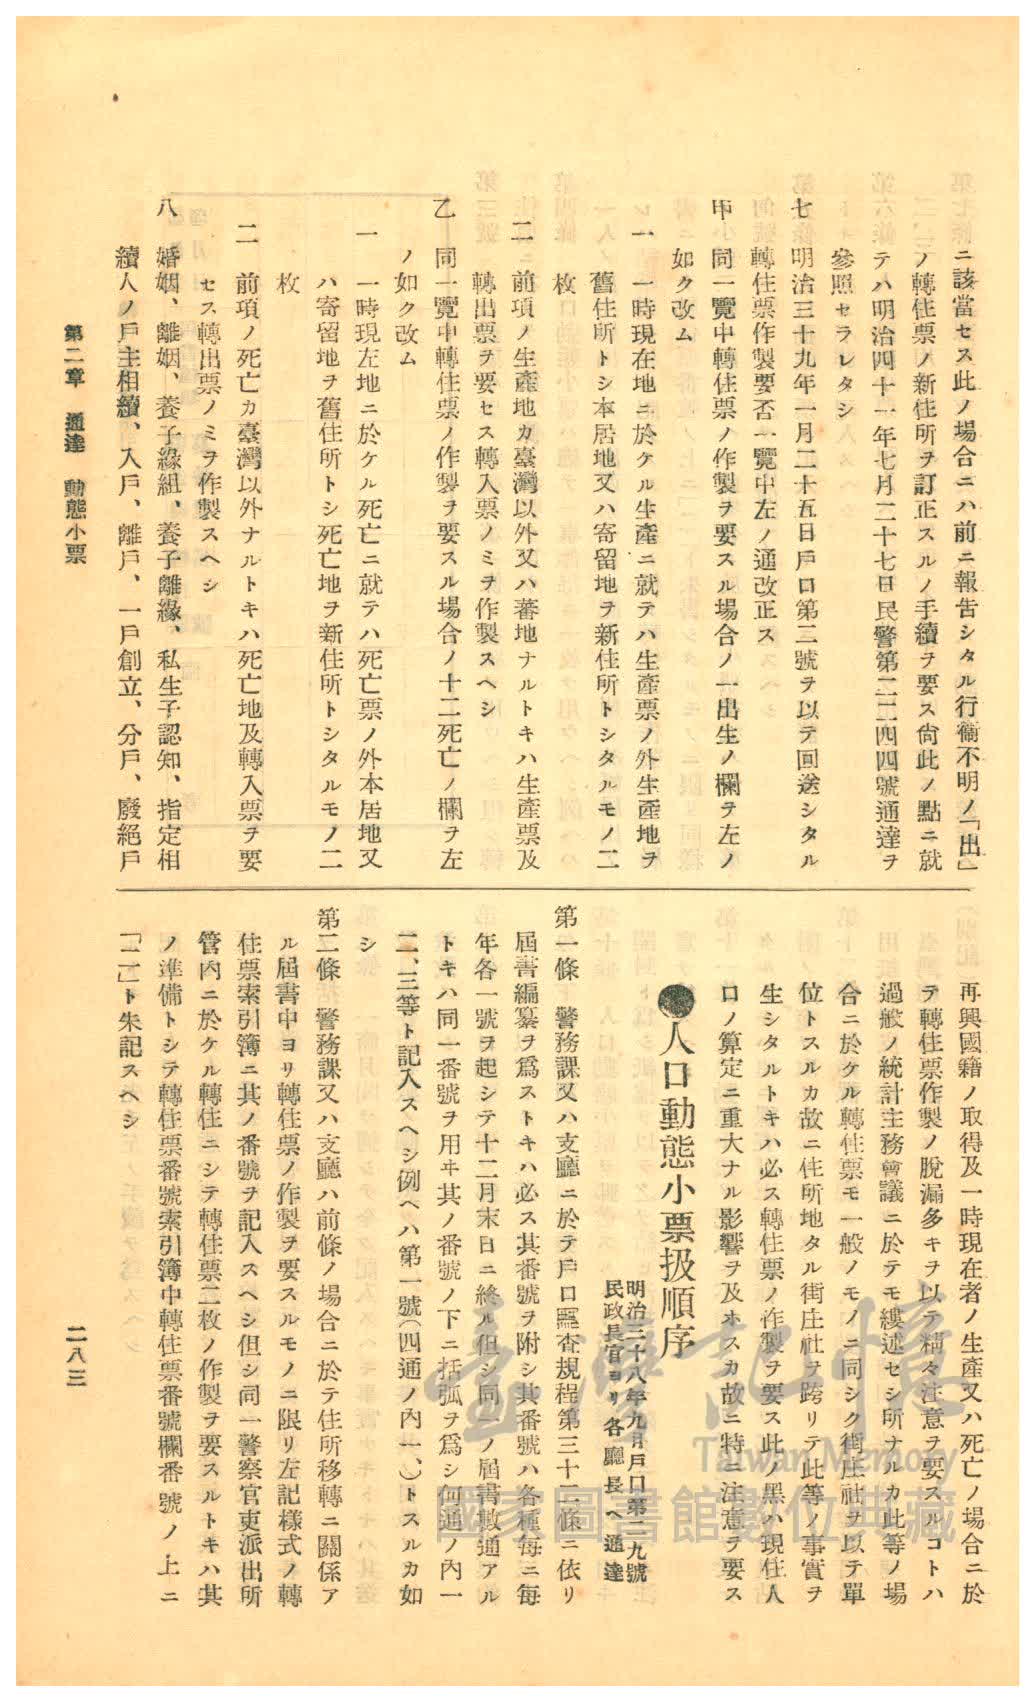 ニ該當セス此ノ場合ニハ前ニ報告シタル行衞不明ノ「出」
ノ轉住票ノ新住所ヲ訂正スルノ手續ヲ要ス尙此ノ點ニ就
テハ明治四十一年七月二十七日民警第二二四四號通達ヲ
參照セラレタシ
七 明治三十九年一月二十五日戶口第二號ヲ以テ囘送シタル
轉住票作製要否一覽中左ノ通改正ス
甲 同一覽中轉住票ノ作製ヲ要スル場合ノ一出生ノ欄ヲ左ノ
如ク改ム
一 一時現在地ニ於ケル生產ニ就テハ生產票ノ外生產地ヲ
舊住所トシ本居地又ハ寄留地ヲ新住所トシタルモノ二
枚
二 前項ノ生產地カ臺灣以外又ハ蕃地ナルトキハ生產票及
轉出票ヲ要セス轉入票ノミヲ作製スヘシ
乙 同一覽中轉住票ノ作製ヲ要スル場合ノ十二死亡ノ欄ヲ左
ノ如ク改ム
一 一時現左地ニ於ケル死亡ニ就テハ死亡票ノ外本居地又
ハ寄留地ヲ舊住所トシ死亡地ヲ新住所トシタルモノ二
枚
二 前項ノ死亡カ臺灣以外ナルトキハ死亡地及轉入票ヲ要
セス轉出票ノミヲ作製スヘシ
八 婚姻、離姻、養子緣組、養子離緣、私生子認知、指定相
續人ノ戶主相續、入戶、離戶、一戶創立、分戶、廢絕戶
再興國籍ノ取得及一時現在者ノ生產又ハ死亡ノ場合ニ於
テ轉住票作製ノ脫漏多キヲ以テ精々注意ヲ要スルコトハ
過般ノ統計主務會議ニ於テモ縷述セシ所ナルカ此等ノ場
合ニ於ケル轉住票モ一般ノモノニ同シク街庄社ヲ以テ單
位トスルカ故ニ住所地タル街庄社ヲ跨リテ此等ノ事實ヲ
生シタルトキハ必ス轉住票ノ作製ヲ要ス此ノ黑ハ現住人
口ノ算定ニ重大ナル影響ヲ及ホスカ故ニ特ニ注意ヲ要ス
●人口動態小票扱順序
明治三十八年九月戶口第二九號
民政長官ヨリ各廳長ヘ通達
第一條 警務課又ハ支廳ニ於テ戶口調査規程第三十二條ニ依リ
屆書編纂ヲ爲ストキハ必ス其番號ヲ附シ其番號ハ各種每ニ每
年各一號ヲ起シテ十二月末日ニ終ル但シ同一ノ屆書數通アル
トキハ同一番號ヲ用ヰ其ノ番號ノ下ニ括弧ヲ爲シ何通ノ內一
二、三等ト記入スヘシ例ヘハ第一號(四通ノ內一、)トスルカ如
シ
第二條 警務課又ハ支廳ハ前條ノ場合ニ於テ住所移轉ニ關係ア
ル屆書中ヨリ轉住票ノ作製ヲ要スルモノニ限リ左記樣式ノ轉
住票索引簿ニ其ノ番號ヲ記入スヘシ但シ同一警察官吏派出所
管內ニ於ケル轉住ニシテ轉住票二枚ノ作製ヲ要スルトキハ其
ノ準備トシテ轉住票番號索引簿中轉住票番號欄番號ノ上ニ
「二」ト朱記スヘシ
第二章 通達 動態小票
二八三
臺灣記憶
Taiwan Memory
國家圖書館數位典藏